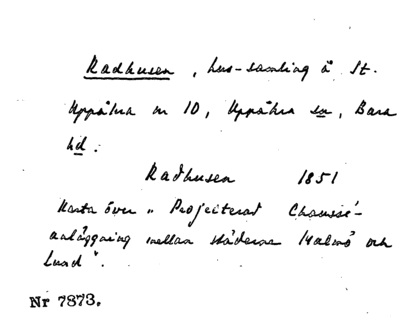 Radhusen, hus-samling å St.
Uppåkra nr 10, Uppåkra sn, Bara
hd.
Radhusen 1851
Karta över "Projecterad Chaussé-
anläggning mellan städerne Malmö och
Lund".
Nr 7873.